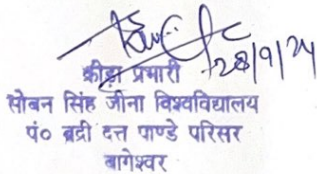 28/9/24
क्रीड़ा प्रभारी
सोबन सिंह जीना विश्वविद्यालय
पं० बद्री दत्त पाण्डे परिसर
बागेश्वर